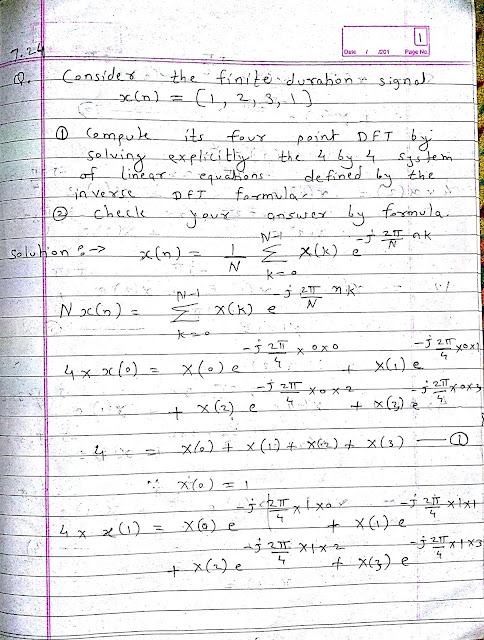 1
Date / /201 Page No.
7.24
Q. Consider the finite duration signal
x(n) = {1, 2, 3, 1}
① Compute its four point DFT by
solving explicitly the 4 by 4 system
of linear equations defined by the
inverse DFT formula.
② Check your answer by formula.
solution :→ x(n) = 1/N Σ_{k=0}^{N-1} X(k) e^{-j 2π/N nk}
N x(n) = Σ_{k=0}^{N-1} X(k) e^{-j 2π/N n.k}
4 x x(0) = X(0) e^{-j 2π/4 x 0x0} + X(1) e^{-j 2π/4 x0x1}
+ X(2) e^{-j 2π/4 x0x2} + X(3) e^{-j 2π/4 x0x3}
4 = X(0) + X(1) + X(2) + X(3) — ①
∵ x(0) = 1
4 x x(1) = X(0) e^{-j 2π/4 x1x0} + X(1) e^{-j 2π/4 x1x1}
+ X(2) e^{-j 2π/4 x1x2} + X(3) e^{-j 2π/4 x1x3}